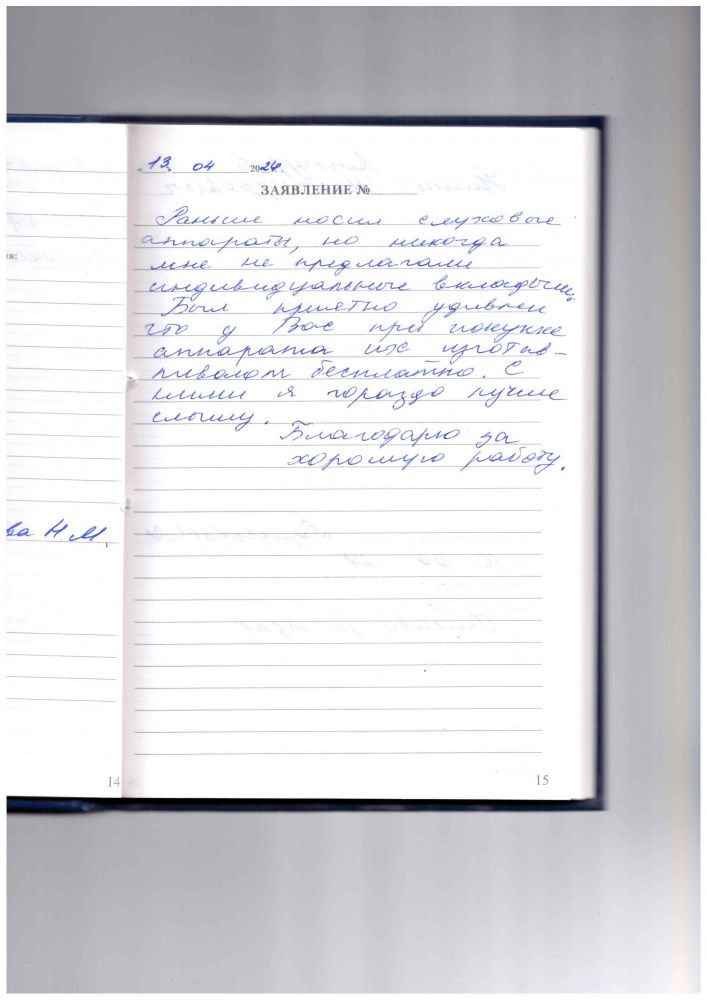 13. 04 2024
ЗАЯВЛЕНИЕ №
Раньше носил слуховые
аппараты, но никогда
мне не предлагали
индивидуальные вкладыши.
Был приятно удивлен
что у Вас при покупке
аппарата их изготав-
ливают бесплатно. С
ними я гораздо лучше
слышу.
Благодарю за
хорошую работу.
ия:
ва Н.М.
14
15